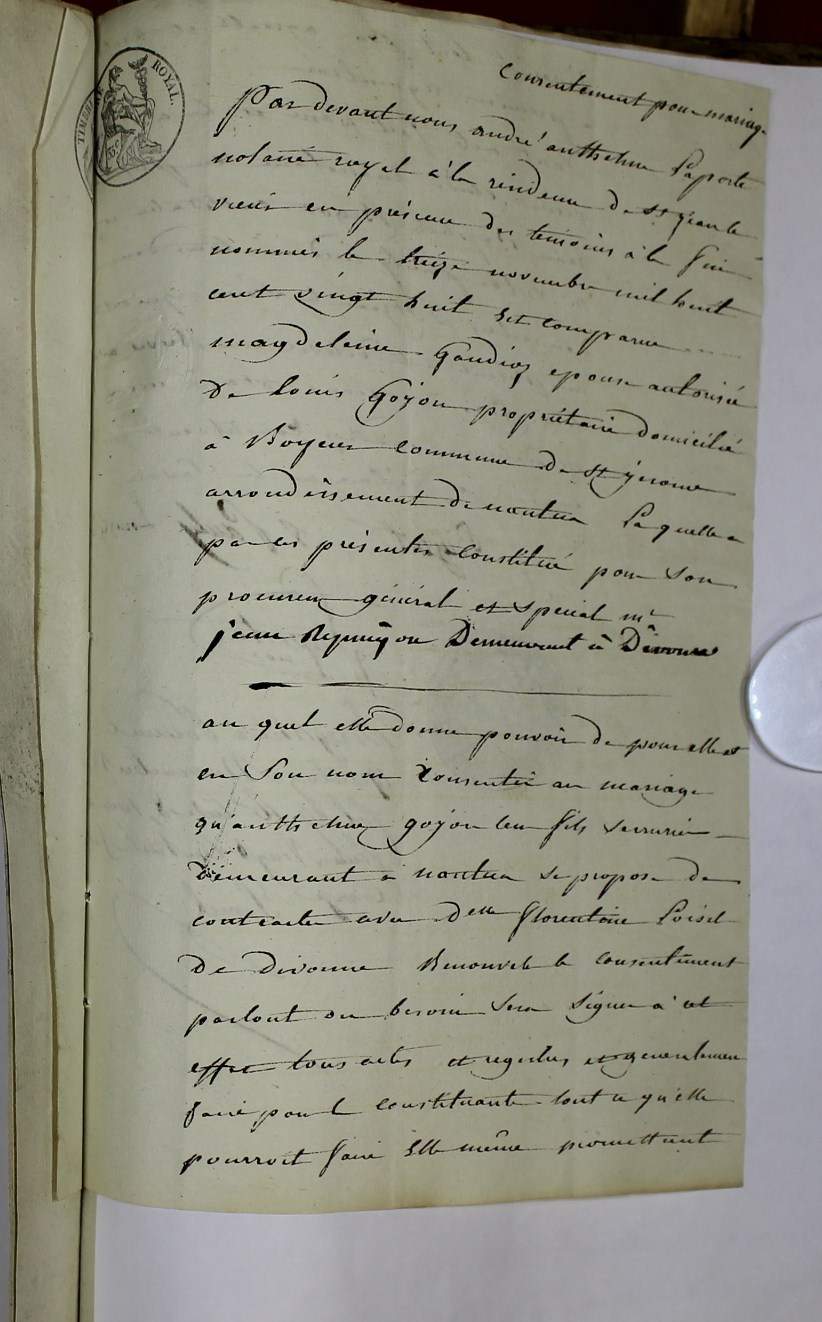 TIMBRE ROYAL.
Consentement pour mariage
Par devant nous andré anthelme Laporte
notaire royal à la résidence de st jean le
vieux en présence des témoins à la fin
nommés le treize novembre mil huit
cent vingt huit Est comparue
magdelaine Goudioz epouse autorisée
De Louis Goyon propriétaire domicilié
à Boyeux commune de st jérome
arrondissement de nantua Laquelle a
par ces présentes Constitué pour son
procureur général et spécial mr
jean Demeurant à Divonne
au quel elle donne pouvoir de pour elle et
en Son nom Consentir au mariage
qu'anthelme goyon leur fils serrurier
Demeurant a nantua se propose de
contracter avec Delle florentine Loisel
De divonne Renouvele le consentement
partout ou besoin sera signer à cet
effet tous actes et registres et generalemen
faire pour la constituante tout ce qu'elle
pourroit faire Elle même promettant